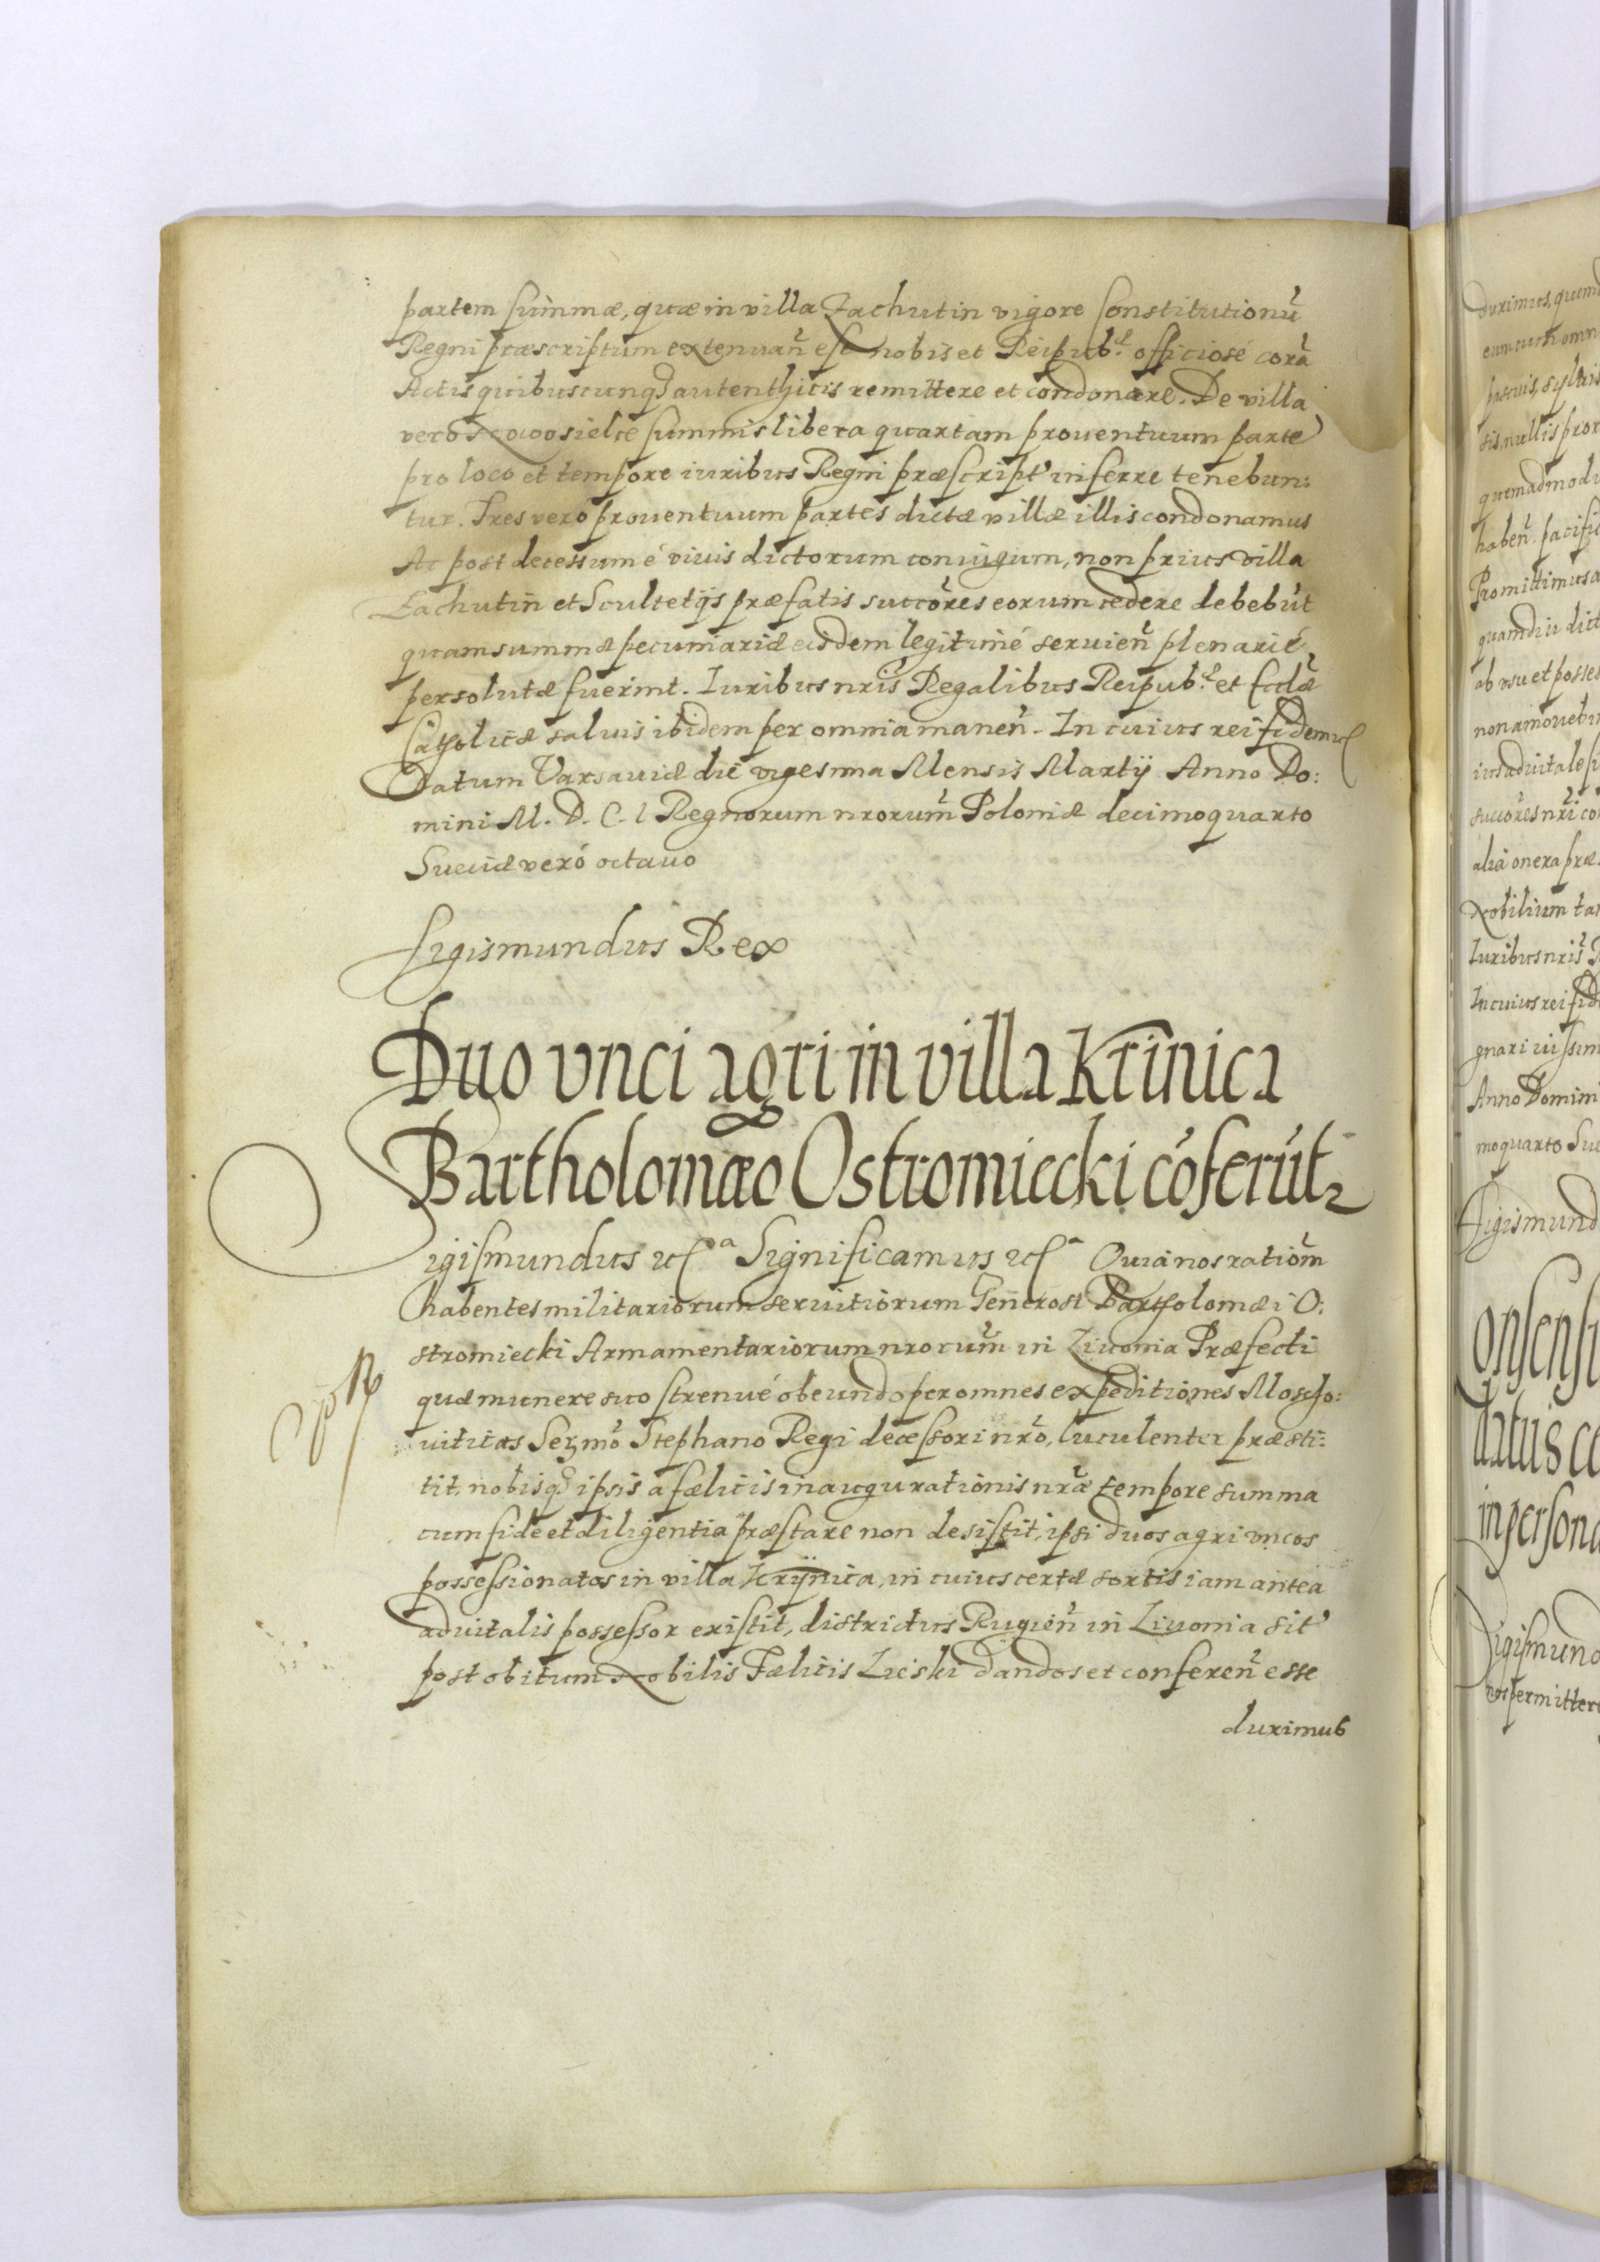 partem summæ, quæ in villa Lachutin vigore Constitutionũ
Regni præscriptum extenuañ est nobis et Reipub: officiosé corã
Actis quibuscunq3 autenthicis remittere et condonare. De villa
vero Nowosielce summis libera quartam prouentuum parte
pro loco et tempore iuribus Regni præscript' inferre tenebun:
tur. Tres vero prouentuum partes dictæ villæ illis condonamus
Ac post decessum é viuis dictorum coniugum, non prius villa
Lachutin et Scultetijs præfatis succõres eorum cedere debebũt
quam summæ pecuniariæ eisdem legitimé seruieñ plenarié
persolutæ fuerint. Iuribus nrĩs Regalibus Reipub: et Ecclæ
Catholicæ saluis ibidem per omnia maneñ. In cuius rei fidem
Datum Varsauiæ die vigesima Mensis Martij Anno Do:
mini M. D. C. I Regnorum nrorum̃ Poloniæ decimoquarto
Sueciæ veró octauo
Sigismundus Rex
Duo vnci agri in villa Krinica
Bartholomæo Ostromiecki cõferũt2
Sigismundus etc̃a Significamus etc̃a Quia nos ratiom̃
habentes militariorum seruitiorum Generosi Bartholomæi O:
stromiecki Armamentariorum nrorum̃ in Liuonia Præfecti
quæ munere suo strenué obeundo per omnes expeditiones Moscho:
uiticas Sermõ Stephano Regi decessori nrõ, luculenter præsti:
tit, nobisq3 ipsis a fælicis inaugurationis nræ̃ tempore summa
cum fide et diligentia præstare non desistit, ipsi duos agri vncos
possessionatos in villa Krÿnica, in cuius certæ sortis iam antea
aduitalis possessor existit, districtus Rugieñ in Liuonia sit'
post obitum Nobilis Fælicis Liciski dandos et confereñ esse
duximus